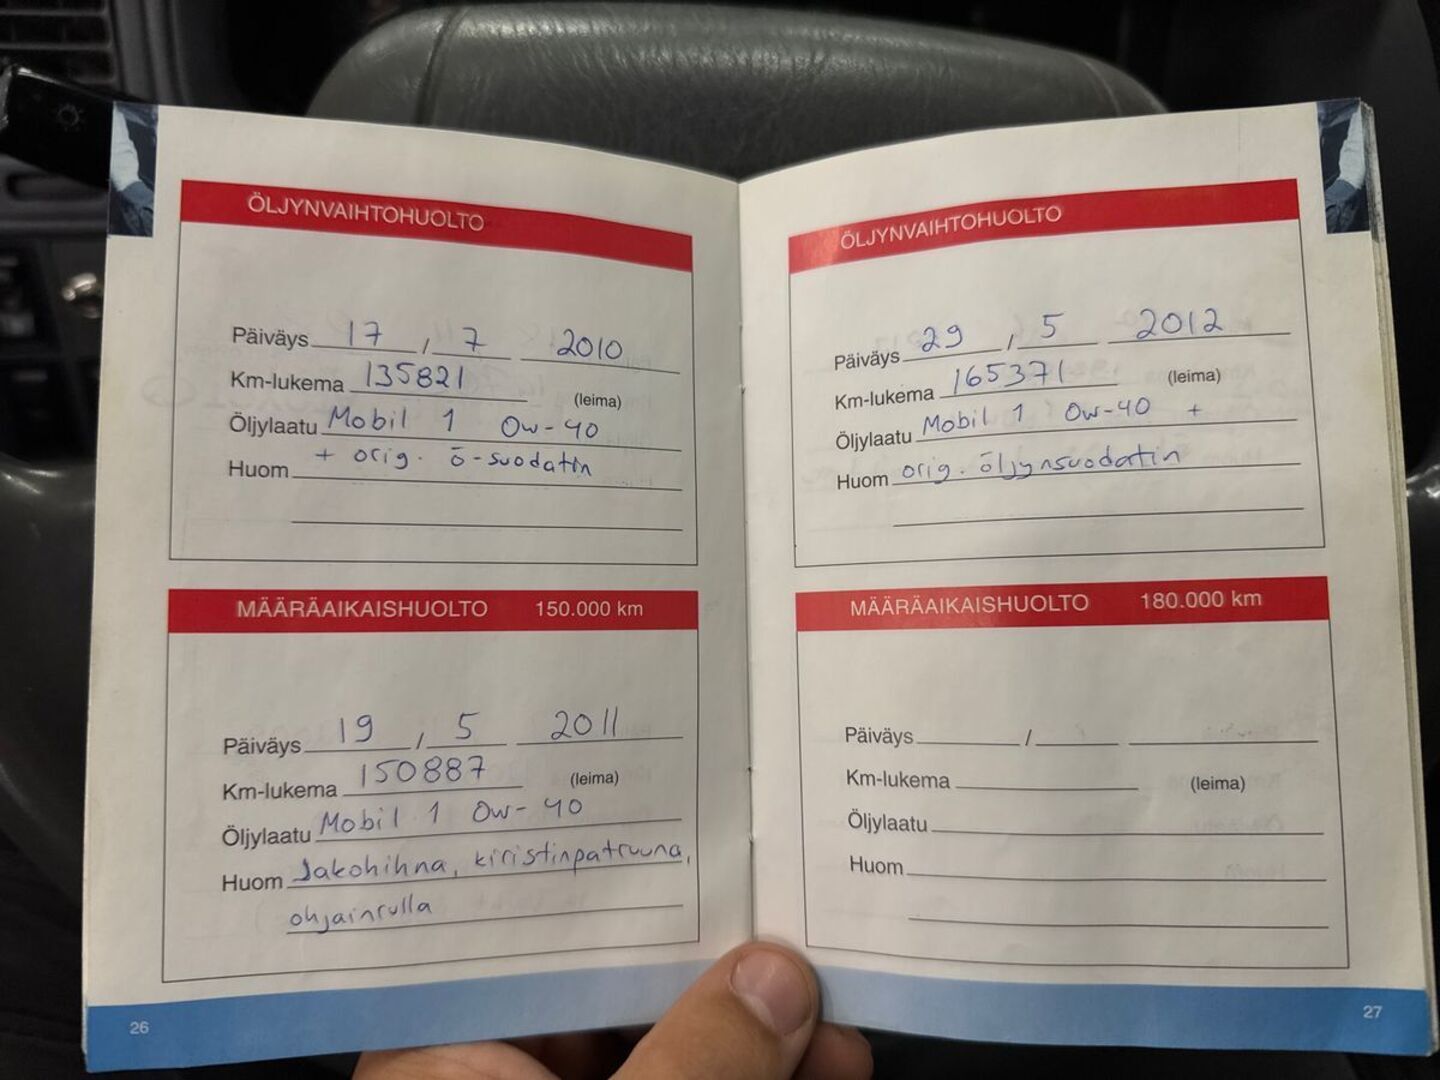 ÖLJYNVAIHTOHUOLTO
Päiväys 17 / 7 2010
Km-lukema 135821 (leima)
Öljylaatu Mobil 1 0w-40
Huom + orig. ö-suodatin
MÄÄRÄAIKAISHUOLTO 150.000 km
Päiväys 19 / 5 2011
Km-lukema 150887 (leima)
Öljylaatu Mobil 1 0w-40
Huom Jakohihna, kiristinpatruuna,
ohjainrulla
26
ÖLJYNVAIHTOHUOLTO
Päiväys 29 / 5 2012
Km-lukema 165371 (leima)
Öljylaatu Mobil 1 0w-40 +
Huom orig. öljynsuodatin
MÄÄRÄAIKAISHUOLTO 180.000 km
Päiväys /
Km-lukema (leima)
Öljylaatu
Huom
27